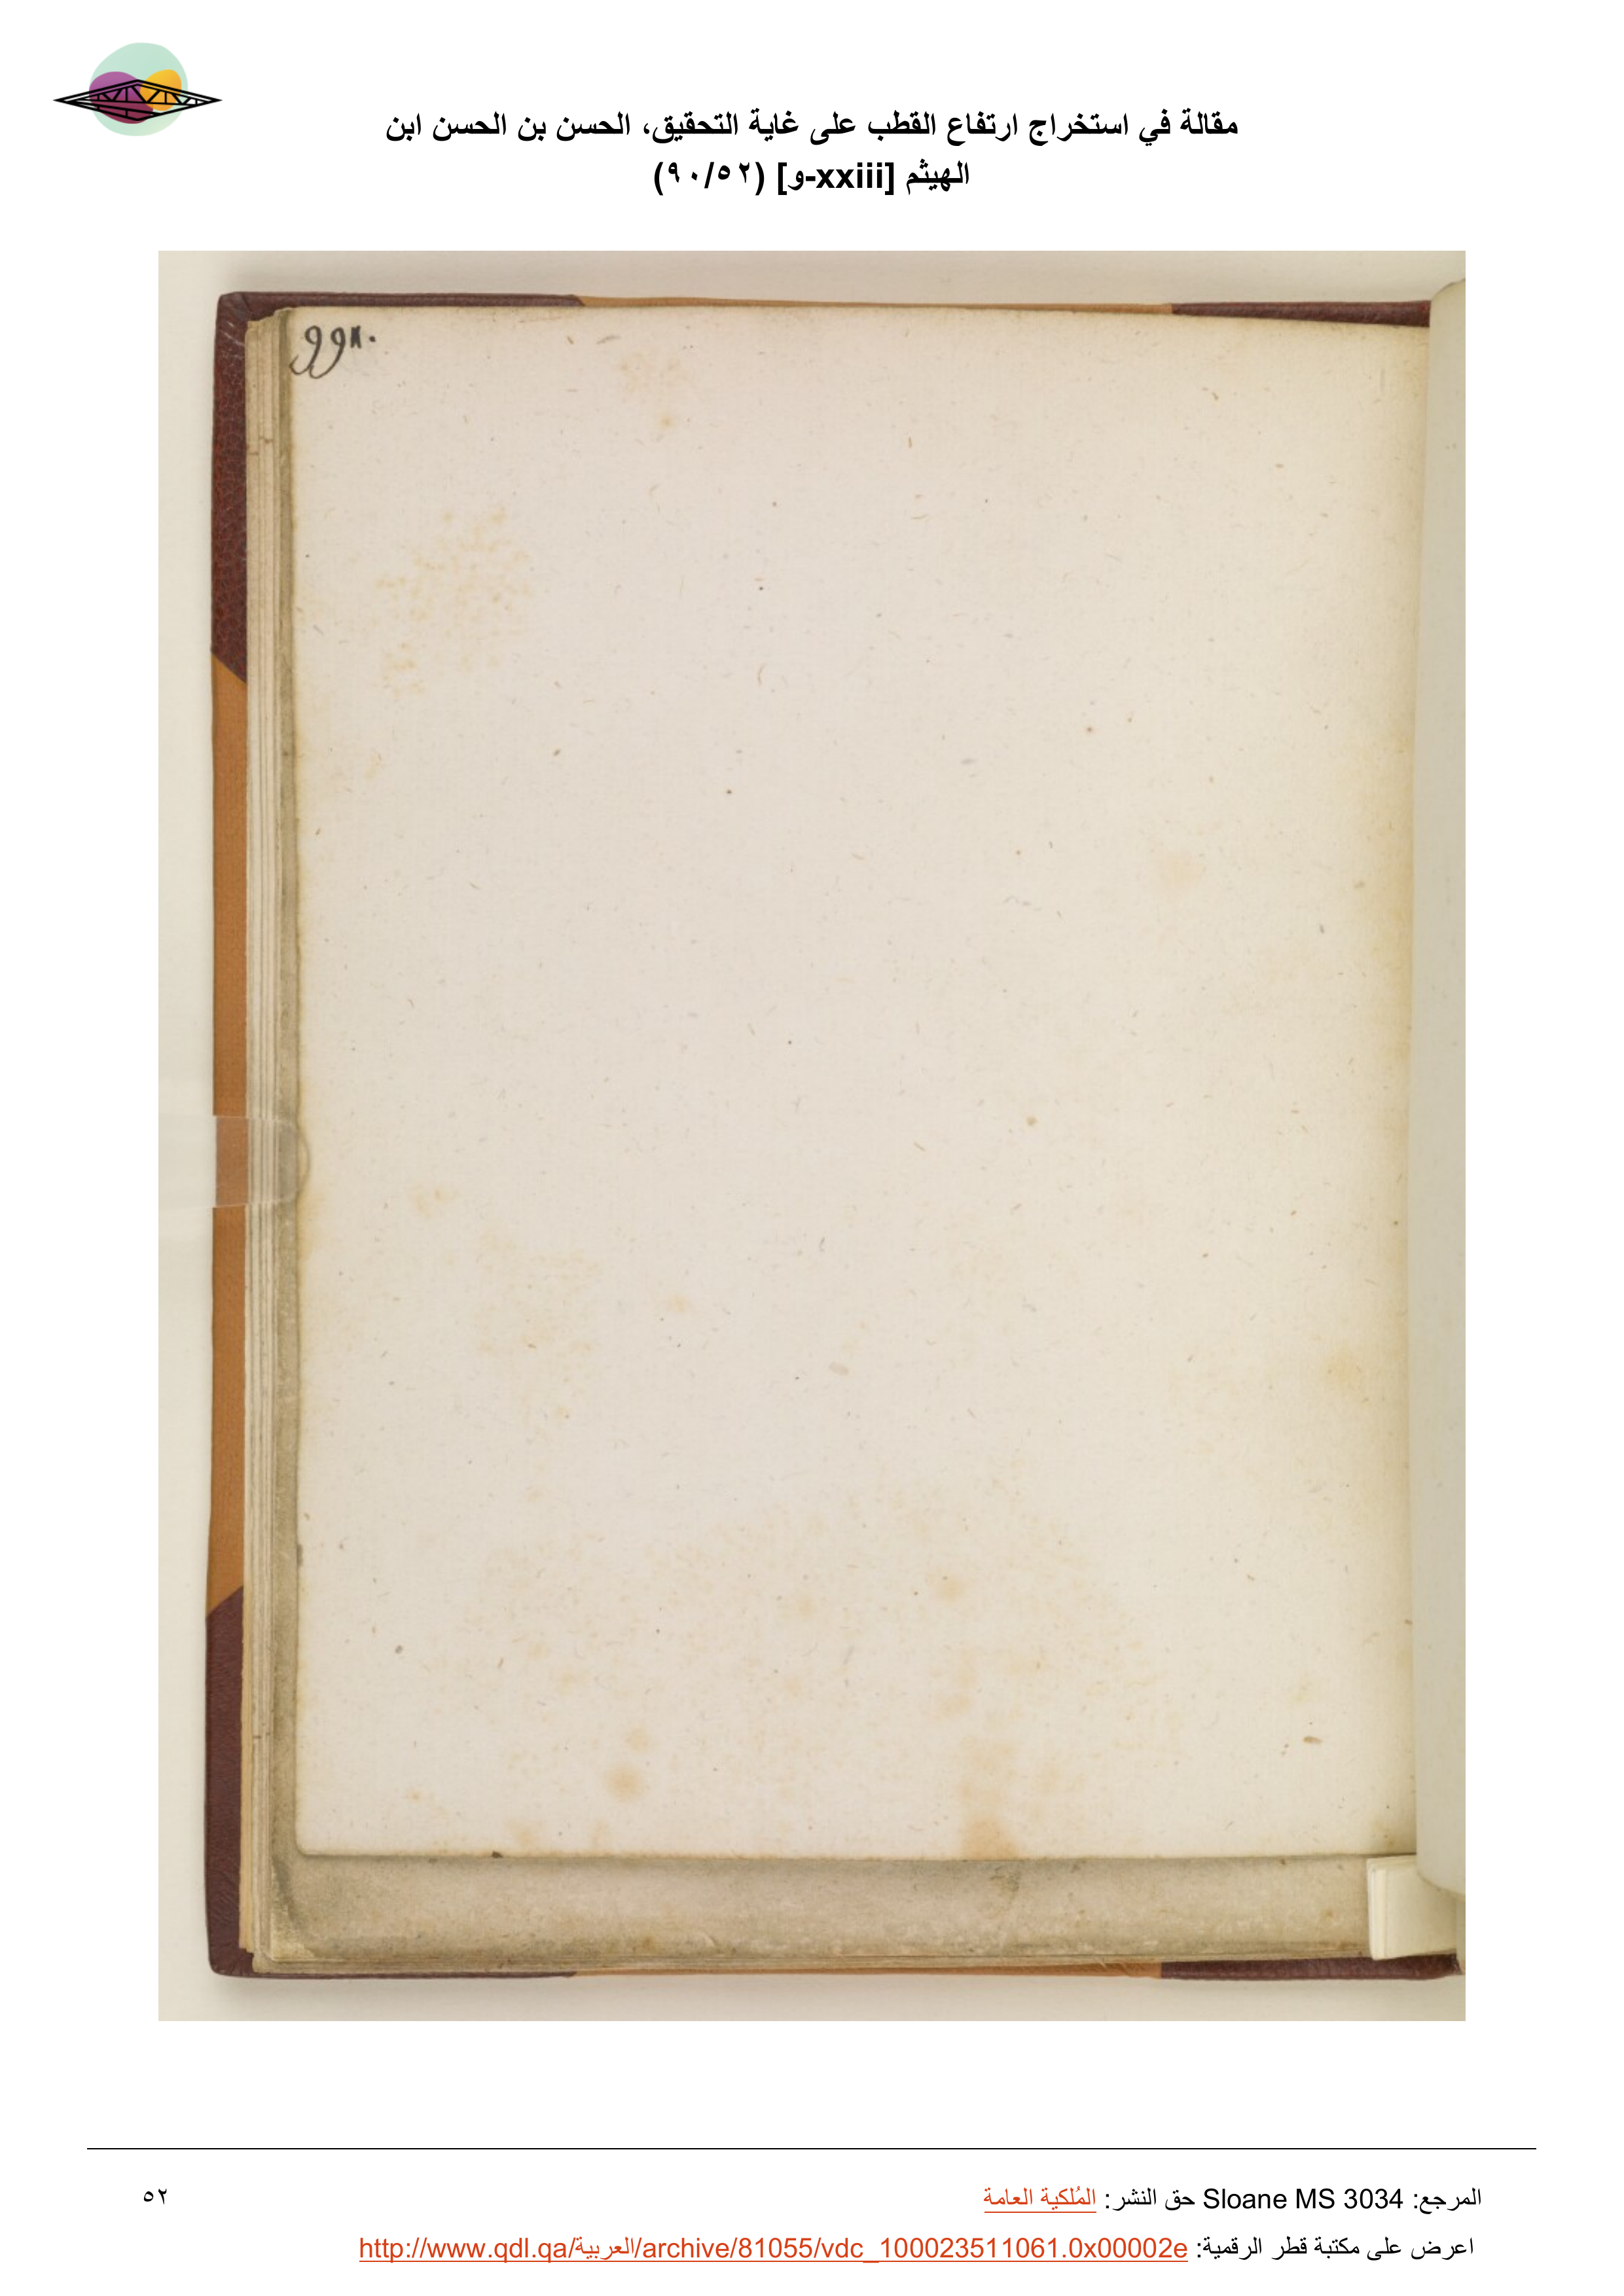 مقالة في استخراج ارتفاع القطب على غاية التحقيق، الحسن بن الحسن ابن
الهيثم [xxiii-و] (٩٠/٥٢)
المرجع: Sloane MS 3034 حق النشر: المُلكية العامة
٥٢
اعرض على مكتبة قطر الرقمية: http://www.qdl.qa/العربية/archive/81055/vdc_100023511061.0x00002e